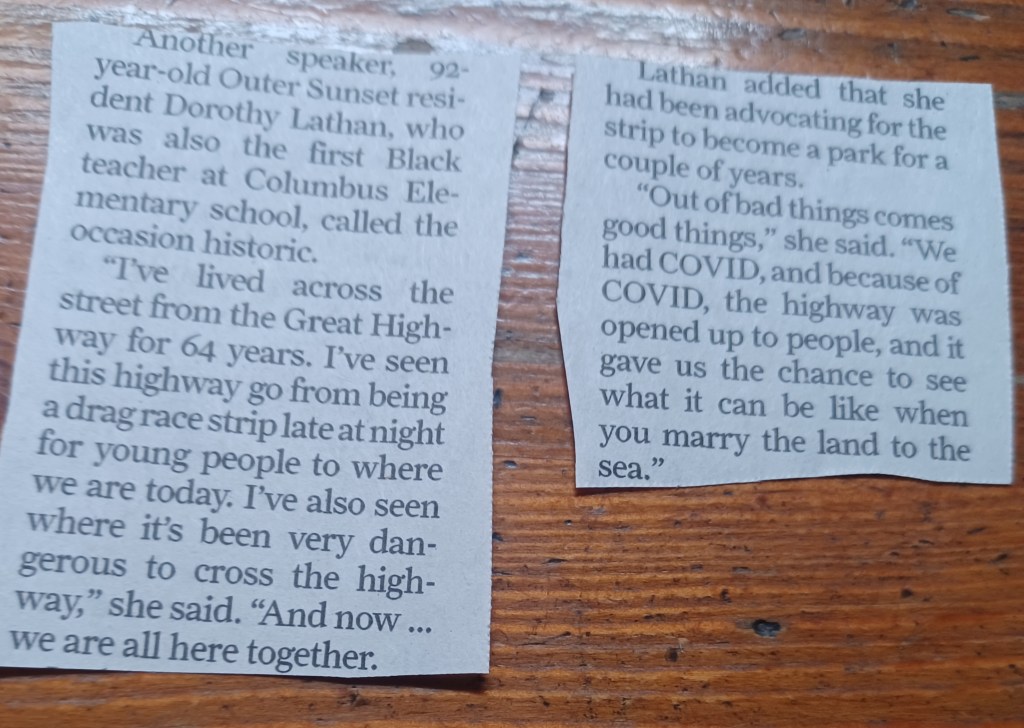 Another speaker, 92-
year-old Outer Sunset resi-
dent Dorothy Lathan, who
was also the first Black
teacher at Columbus Ele-
mentary school, called the
occasion historic.
“I’ve lived across the
street from the Great High-
way for 64 years. I’ve seen
this highway go from being
a drag race strip late at night
for young people to where
we are today. I’ve also seen
where it’s been very dan-
gerous to cross the high-
way,” she said. “And now ...
we are all here together.
Lathan added that she
had been advocating for the
strip to become a park for a
couple of years.
“Out of bad things comes
good things,” she said. “We
had COVID, and because of
COVID, the highway was
opened up to people, and it
gave us the chance to see
what it can be like when
you marry the land to the
sea.”